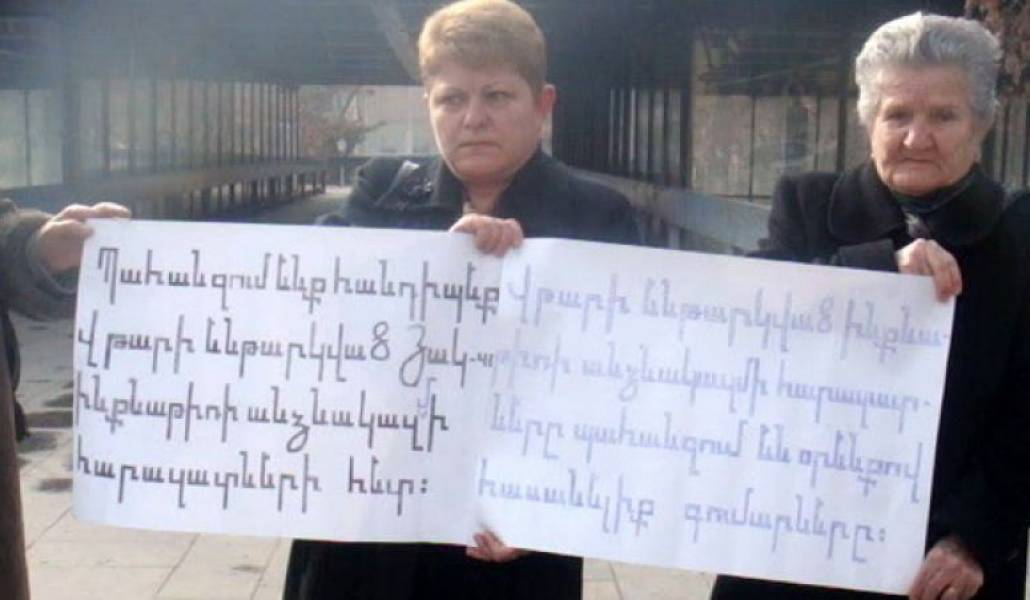 Պահանջում ենք հանդիպեք
Վթարի ենթարկված Յակ-40
ինքնաթիռի անձնակազմի
հարազատների հետ:
Վթարի ենթարկված ինքնա-
թիռի անձնակազմի հարազատ-
ները պահանջում են օրենքով
հասանելիք գումարները: